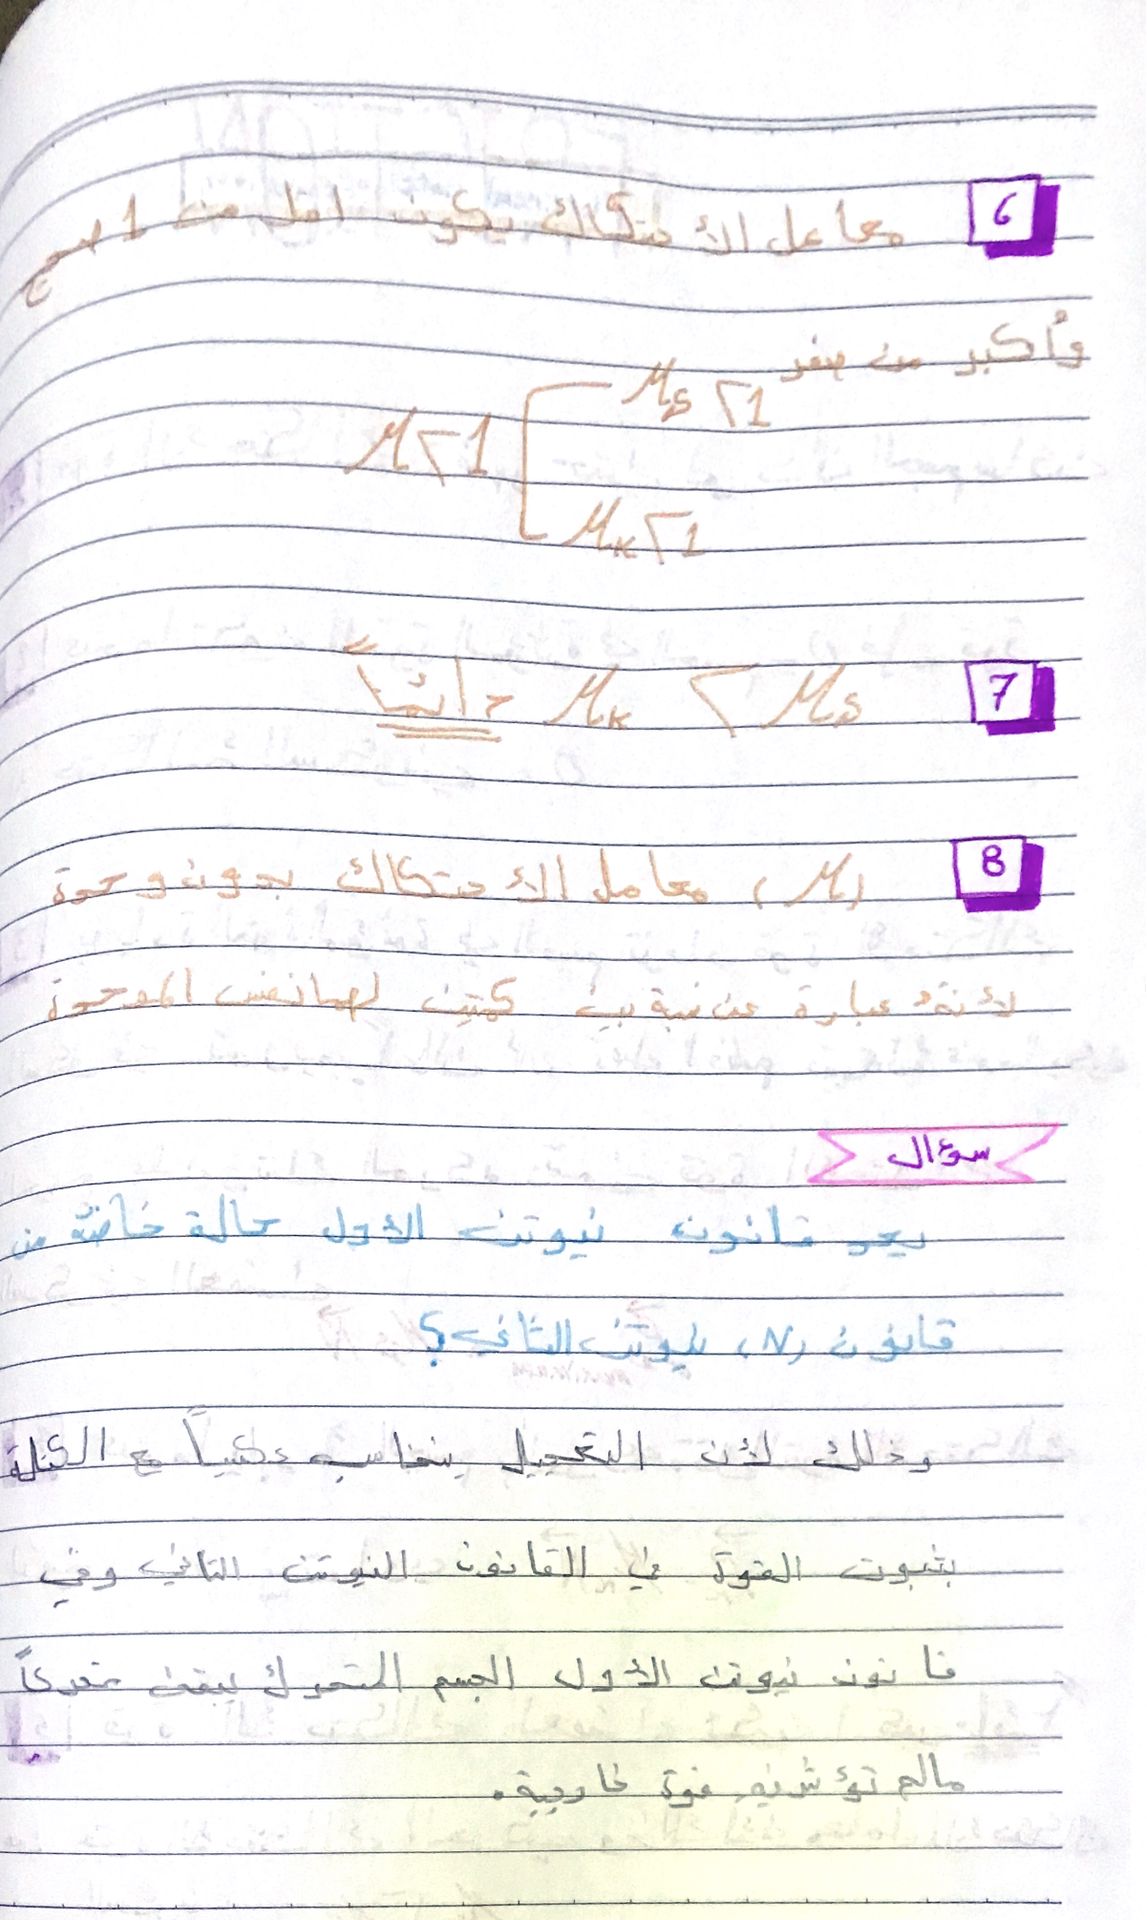 6 معامل الأحتكاك يكون اقل من 1 صحيح
وأكبر من صفر
μs < 1
μ < 1
μk < 1
7 μs > μk دائماً
8 (μ) معامل الأحتكاك بدون وحدة
لأنهُ عبارة عن نسبة بين كمتين لهما نفس الموحدة
سؤال
يعد قانون نيوتن الأول حالة خاصة من
قانون (N) نيوتن الثاني؟
وذلك لأن التعجيل يتناسب عكسياً مع الكتلة
بثبوت القوة في القانون النيوتن الثاني وفي
قانون نيوتن الأول الجسم المتحرك يبقى متحركاً
مالم تؤثر فيه قوة خارجية.